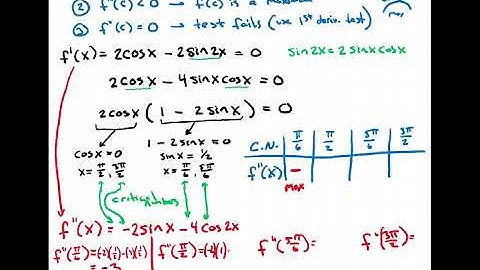 ② f"(c) < 0 → f(c) is a maximum
③ f"(c) = 0 → test fails (use 1st deriv. test)
f'(x) = 2cosx - 2sin2x = 0
sin2x = 2sinxcosx
2cosx - 4sinxcosx = 0
2cosx(1 - 2sinx) = 0
cosx = 0
x = π/2, 3π/2
1 - 2sinx = 0
sinx = 1/2
x = π/6, 5π/6
critical numbers
C.N. π/6 π/2 5π/6 3π/2
f"(x) -
max
f"(x) = -2sinx - 4cos2x
f"(π/6) = (-2)(1/2) - (4)(1/2)
= -3
f"(π/2) = (-2)(1)
f"(5π/6) =
f"(3π/2) =